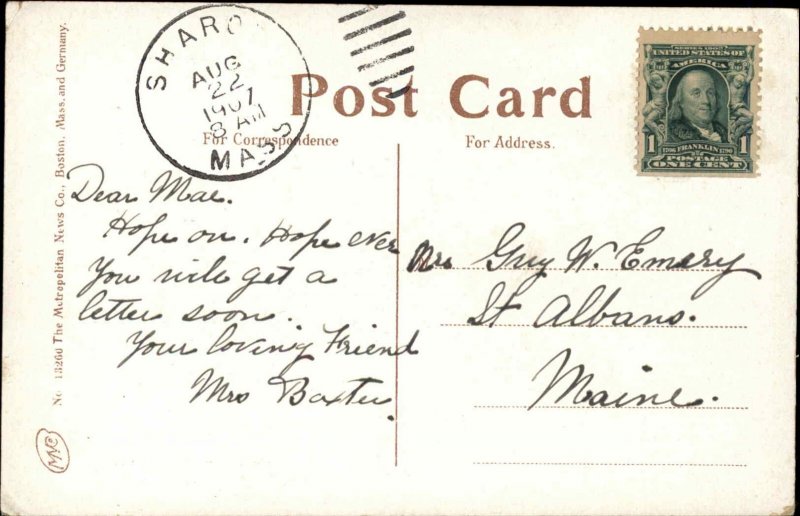 SHARO
AUG
22
1907
8 AM
MASS
Post Card
For Correspondence
For Address.
SERIES 1902
UNITED STATES OF
AMERICA
1706 FRANKLIN 1790
1 POSTAGE 1
ONE CENT
No. 13260 The Metropolitan News Co., Boston, Mass. and Germany.
Dear Mae.
Hope on. Hope ever
You will get a
letter soon.
Your loving Friend
Mrs Baxter.
Mrs Guy W. Emery
St Albans.
Maine.
MNC